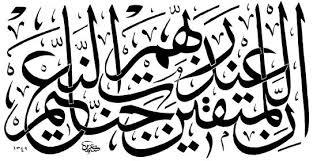 إِنَّ لِلْمُتَّقِينَ عِنْدَ رَبِّهِمْ جَنَّاتِ النَّعِيمِ
١٣٤٩